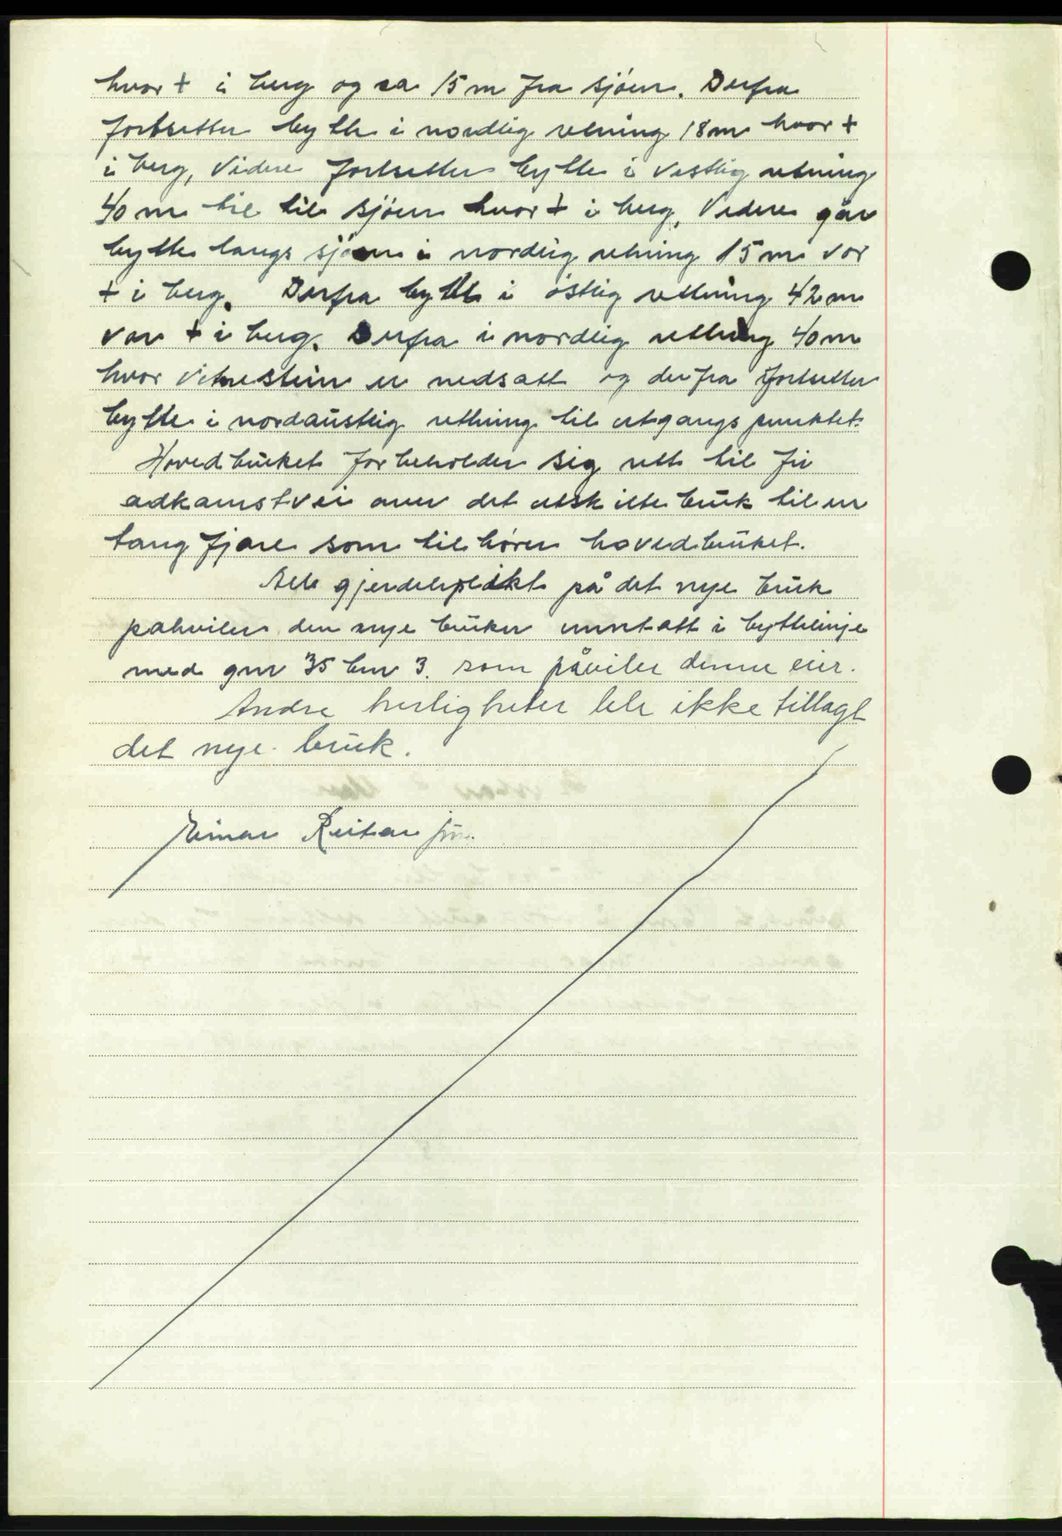 hvor + i berg og ca 15 m fra sjøen. Derfra
fortsetter bytte i nordlig retning 18 m hvor +
i berg, Videre fortsetter bytte i vestlig retning
40 m til til sjøen hvor + i berg. Videre går
bytte langs sjøen i nordlig retning 15 m vor
+ i berg. Derfra bytte i östlig retning 42 m
vor + i berg. Derfra i nordlig retning 40 m
hvor vitnestein er nedsatt og derfra fortsetter
bytte i nordaustlig retning til utgangspunktet.
Hovedbruket forbeholder sig rett til fri
adkomstvei over det utskilte bruk til en
tangfjære som tilhører hovedbruket.
Alle gjerdeplikt på det nye bruk
påhviler den nye bruker unntatt i byttelinje
med gnr 35 bnr 3. som påviler denne eier.
Andre herligheter ble ikke tillagt
det nye bruk.
Einar Reitan jun.